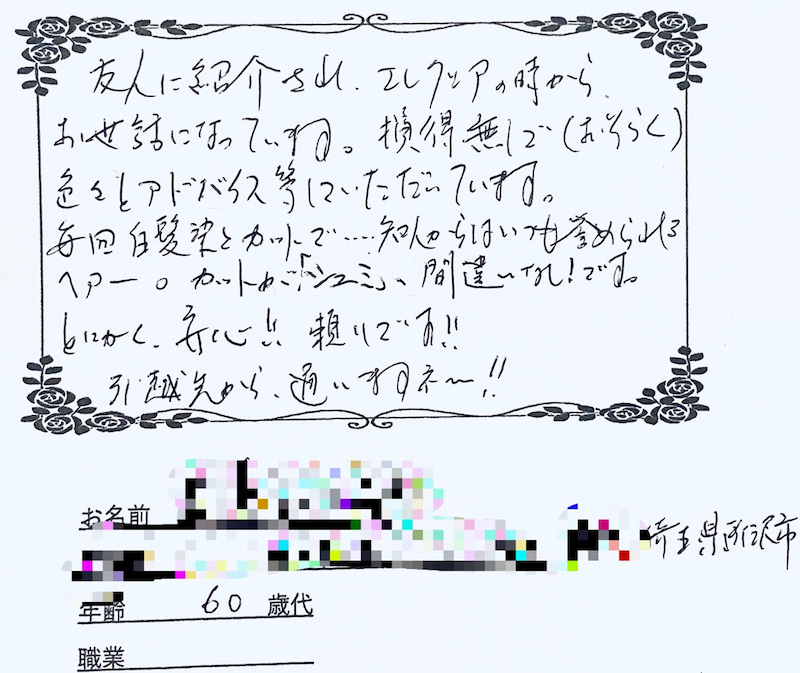 友人に紹介され、エレクシアの時から、
お世話になっています。損得無しで(おそらく)
色々とアドバイス等していただいています。
毎回白髪染とカットで‥‥知人からはいつも誉められる
ヘアー。カットが「シュミ」、間違いなし!です。
とにかく、安心!! 頼りです!!
引越先から、通いますネ〜!!
お名前
埼玉県所沢市
年齢 60 歳代
職業